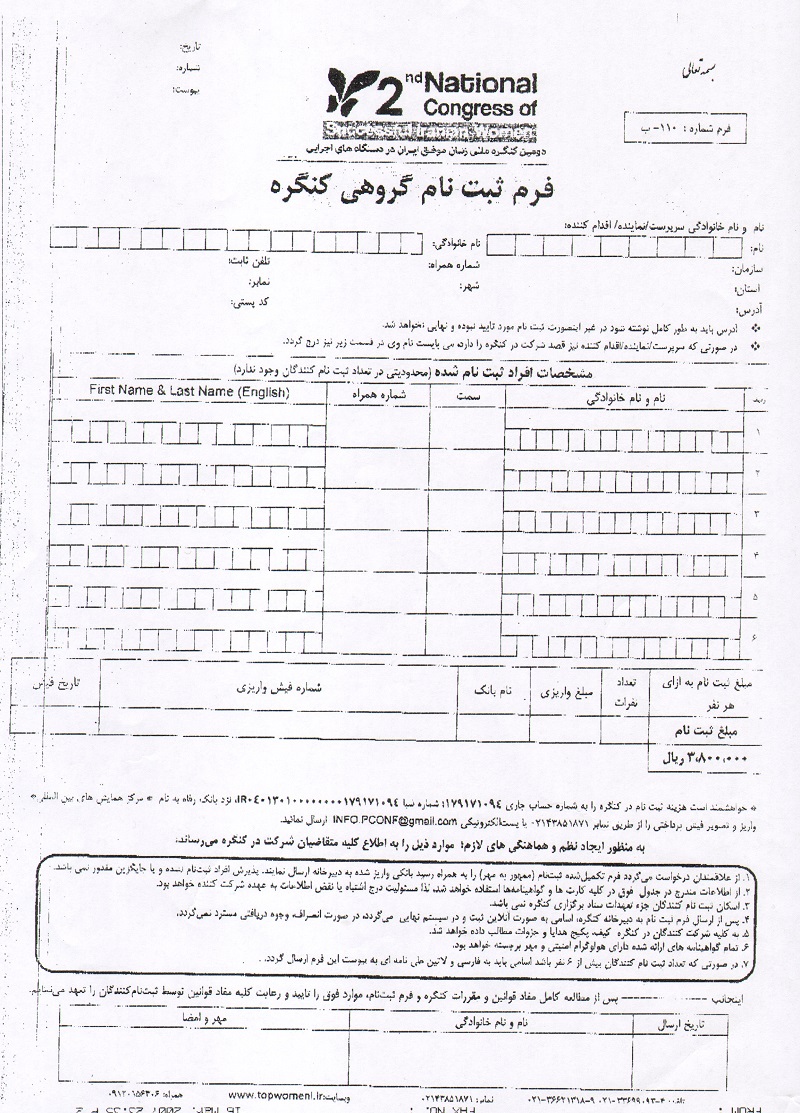 بسمه تعالی
تاریخ:
شماره:
پیوست:
2nd National
Congress of
Successful Iranian Women
دومین کنگره ملی زنان موفق ایران در دستگاه های اجرایی
فرم شماره : ۱۱۰- ب
فرم ثبت نام گروهی کنگره
نام و نام خانوادگی سرپرست/نماینده/ اقدام کننده:
نام: نام خانوادگی:
سازمان: شماره همراه: تلفن ثابت:
استان: شهر: نمابر:
آدرس: کد پستی:
❖ آدرس باید به طور کامل نوشته شود در غیر اینصورت ثبت نام مورد تایید نبوده و نهایی نخواهد شد.
❖ در صورتی که سرپرست/نماینده/اقدام کننده نیز قصد شرکت در کنگره را دارد، می بایست نام وی در قسمت زیر نیز درج گردد.
مشخصات افراد ثبت نام شده (محدودیتی در تعداد ثبت نام کنندگان وجود ندارد)
ردیف نام و نام خانوادگی سمت شماره همراه First Name & Last Name (English)
۱
۲
۳
۴
۵
۶
مبلغ ثبت نام به ازای هر نفر تعداد نفرات مبلغ واریزی نام بانک شماره فیش واریزی تاریخ فیش
مبلغ ثبت نام
۳،۸۰۰،۰۰۰ ریال
« خواهشمند است هزینه ثبت نام در کنگره را به شماره حساب جاری ۱۷۹۱۷۱۰۹۴؛ شماره شبا IR۰۴۰۱۳۰۱۰۰۰۰۰۰۰۰۰۱۷۹۱۷۱۰۹۴، نزد بانک رفاه به نام « مرکز همایش های بین المللی»
واریز و تصویر فیش پرداختی را از طریق نمابر ۰۲۱۴۳۸۵۱۸۷۱ یا پست الکترونیکی INFO.PCONF@gmail.com ارسال نمائید.
به منظور ایجاد نظم و هماهنگی های لازم؛ موارد ذیل را به اطلاع کلیه متقاضیان شرکت در کنگره می‌رساند:
۱. از علاقمندان درخواست می‌گردد فرم تکمیل‌شده ثبتنام (ممهور به مهر) را به همراه رسید بانکی واریز شده به دبیرخانه ارسال نمایند. پذیرش افراد ثبت‌نام نشده و یا جایگزین مقدور نمی باشد.
۲. از اطلاعات مندرج در جدول فوق در کلیه کارت ها و گواهینامه‌ها استفاده خواهد شد، لذا مسئولیت درج اشتباه یا نقض اطلاعات به عهده شرکت کننده خواهد بود.
۳. اسکان ثبت نام کنندگان جزء تعهدات ستاد برگزاری کنگره نمی باشد.
۴. پس از ارسال فرم ثبت نام به دبیرخانه کنگره، اسامی به صورت آنلاین ثبت و در سیستم نهایی می‌گردد، در صورت انصراف، وجوه دریافتی مسترد نمی‌گردد.
۵. به کلیه شرکت کنندگان در کنگره کیف، پکیج هدایا و جزوات مطالب داده خواهد شد.
۶. تمام گواهینامه های ارائه شده دارای هولوگرام امنیتی و مهر برجسته خواهد بود.
۷. در صورتی که تعداد ثبت نام کنندگان بیش از ۶ نفر باشد اسامی باید به فارسی و لاتین طی نامه ای به پیوست این فرم ارسال گردد.
اینجانب ---------------- پس از مطالعه کامل مفاد قوانین و مقررات کنگره و فرم ثبت‌نام، موارد فوق را تایید و رعایت کلیه مفاد قوانین توسط ثبت‌نام‌کنندگان را تعهد می‌نمایم.
تاریخ ارسال نام و نام خانوادگی مهر و امضا
تلفن: ۴-۰۲۱-۳۳۶۹۹۰۹۳ ۹-۰۲۱-۳۶۶۲۱۳۱۸ نمابر: ۰۲۱۴۳۸۵۱۸۷۱ وبسایت:www.topwomeni.ir همراه: ۰۹۱۲۰۱۵۶۴۰۶